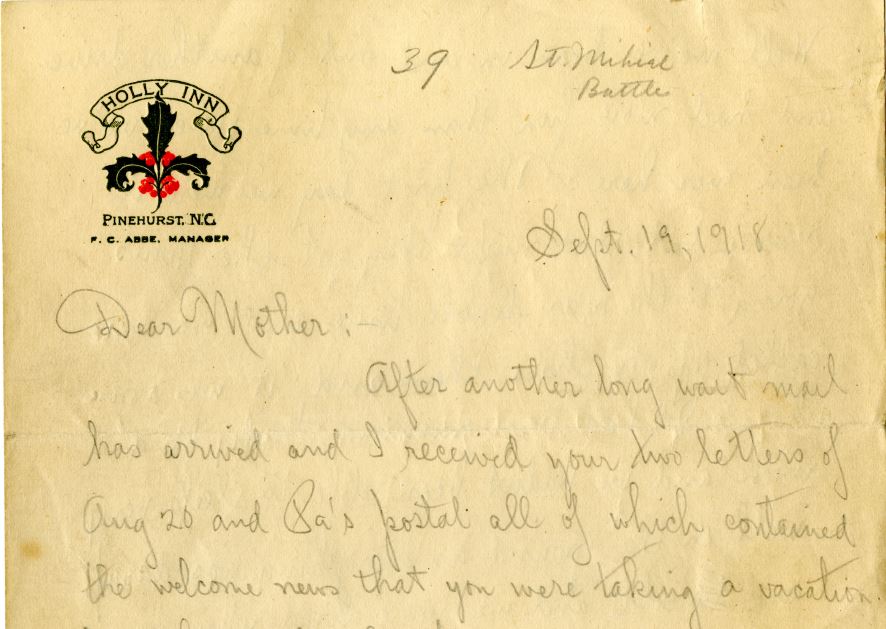 39 St. Mihiel
Battle
HOLLY INN
PINEHURST, N.C.
F. C. ABBE, MANAGER
Sept. 19, 1918
Dear Mother :-
After another long wait mail
has arrived and I received your two letters of
Aug 20 and Pa's postal all of which contained
the welcome news that you were taking a vacation.